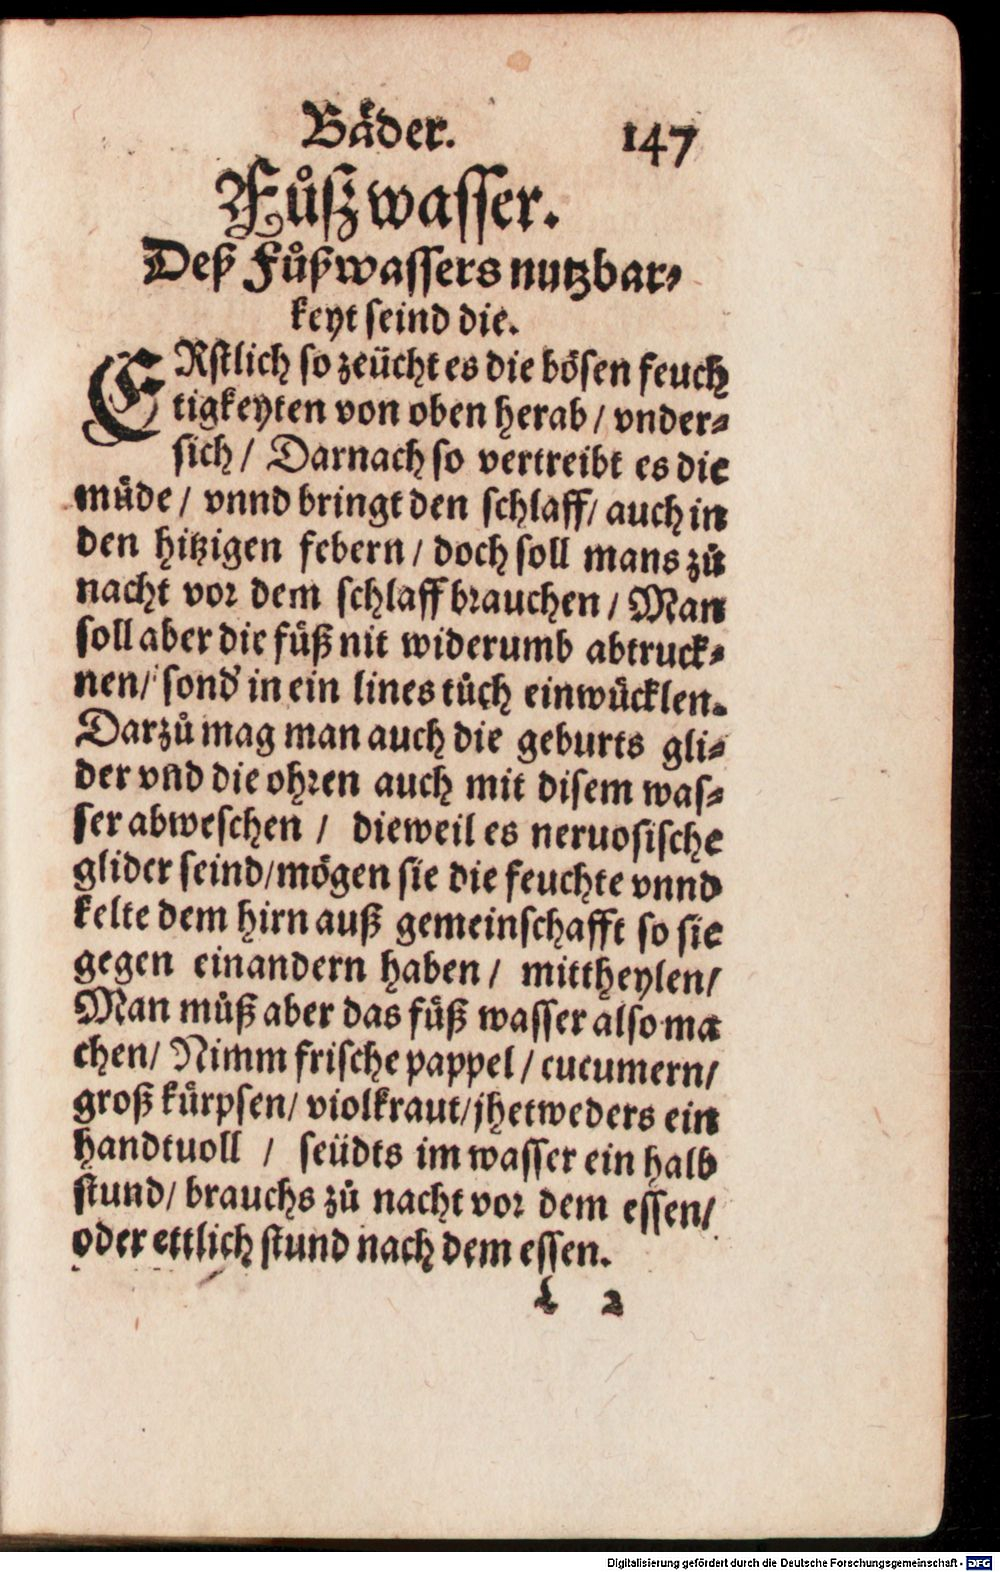 Baͤder. 147
Fuͤßwasser.
Deß Fuͤßwassers nutzbar⸗
keyt seind die.
ERstlich so zeücht es die boͤsen feuch
tigkeyten von oben herab / vnder⸗
sich / Darnach so vertreibt es die
muͤde / vnnd bringt den schlaff / auch in
den hitzigen febern / doch soll mans zů
nacht vor dem schlaff brauchen / Man
soll aber die fuͤß nit widerumb abtruck⸗
nen / sond̕ in ein lines tůch einwücklen.
Darzů mag man auch die geburts gli⸗
der vnd die ohren auch mit disem was⸗
ser abweschen / dieweil es neruosische
glider seind / moͤgen sie die feuchte vnnd
kelte dem hirn auß gemeinschafft so sie
gegen einandern haben / mittheylen /
Man můß aber das fuͤß wasser also ma
chen / Nimm frische pappel / cucumern /
groß kürpsen / violkraut / jhetweders ein
handtuoll / seüdts im wasser ein halb
stund / brauchs zů nacht vor dem essen /
oder ettlich stund nach dem essen.
L 2
Digitalisierung gefördert durch die Deutsche Forschungsgemeinschaft - DFG